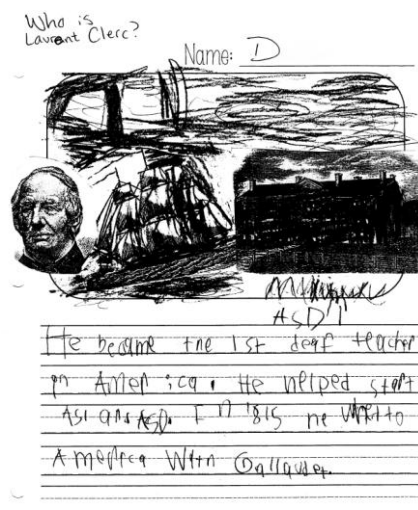 Who is
Laurent Clerc?
Name: D
ASD
He became the 1st deaf teacher
in America. He helped start
ASL and ASD. In 1815 he went to
America with Gallaudet.